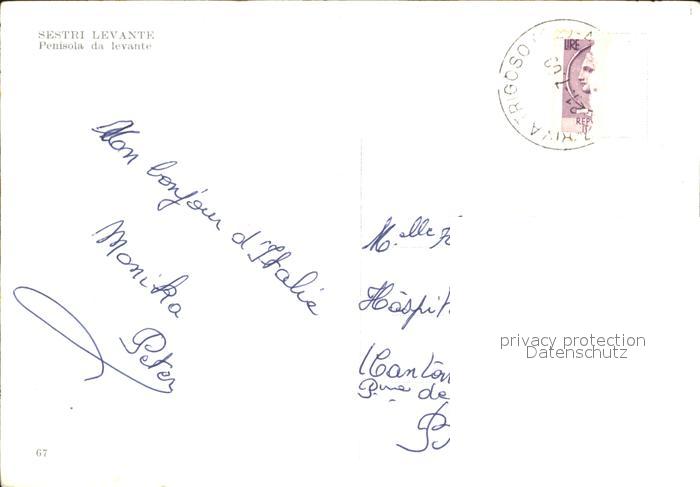 SESTRI LEVANTE
Penisola da levante
RIVA TRIGOSO
LIRE
REP
Mon bonjour d'Italie
Monika
Peter
M.elle
Hôspit
Canton
P. de
privacy protection
Datenschutz
67